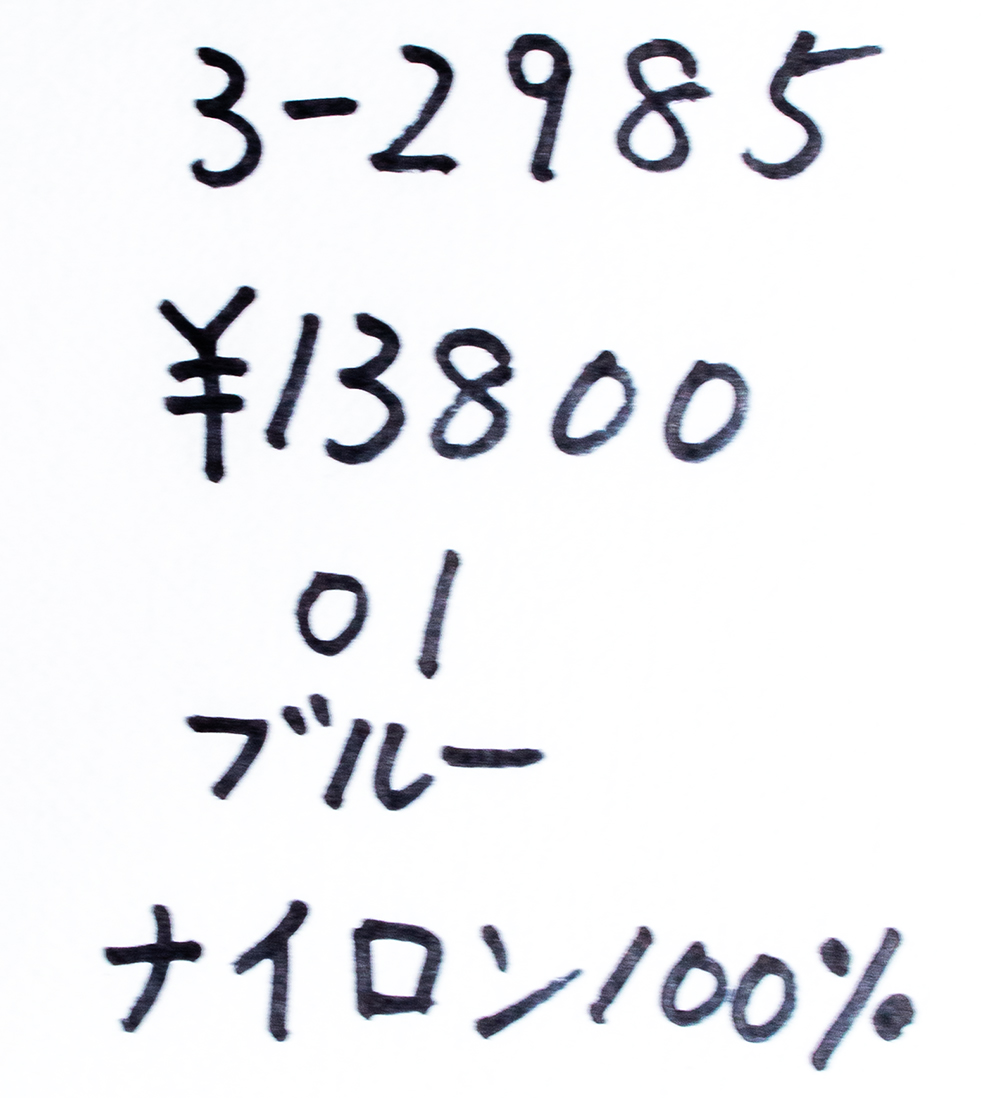 3-2985
¥13800
01
ブルー
ナイロン100%